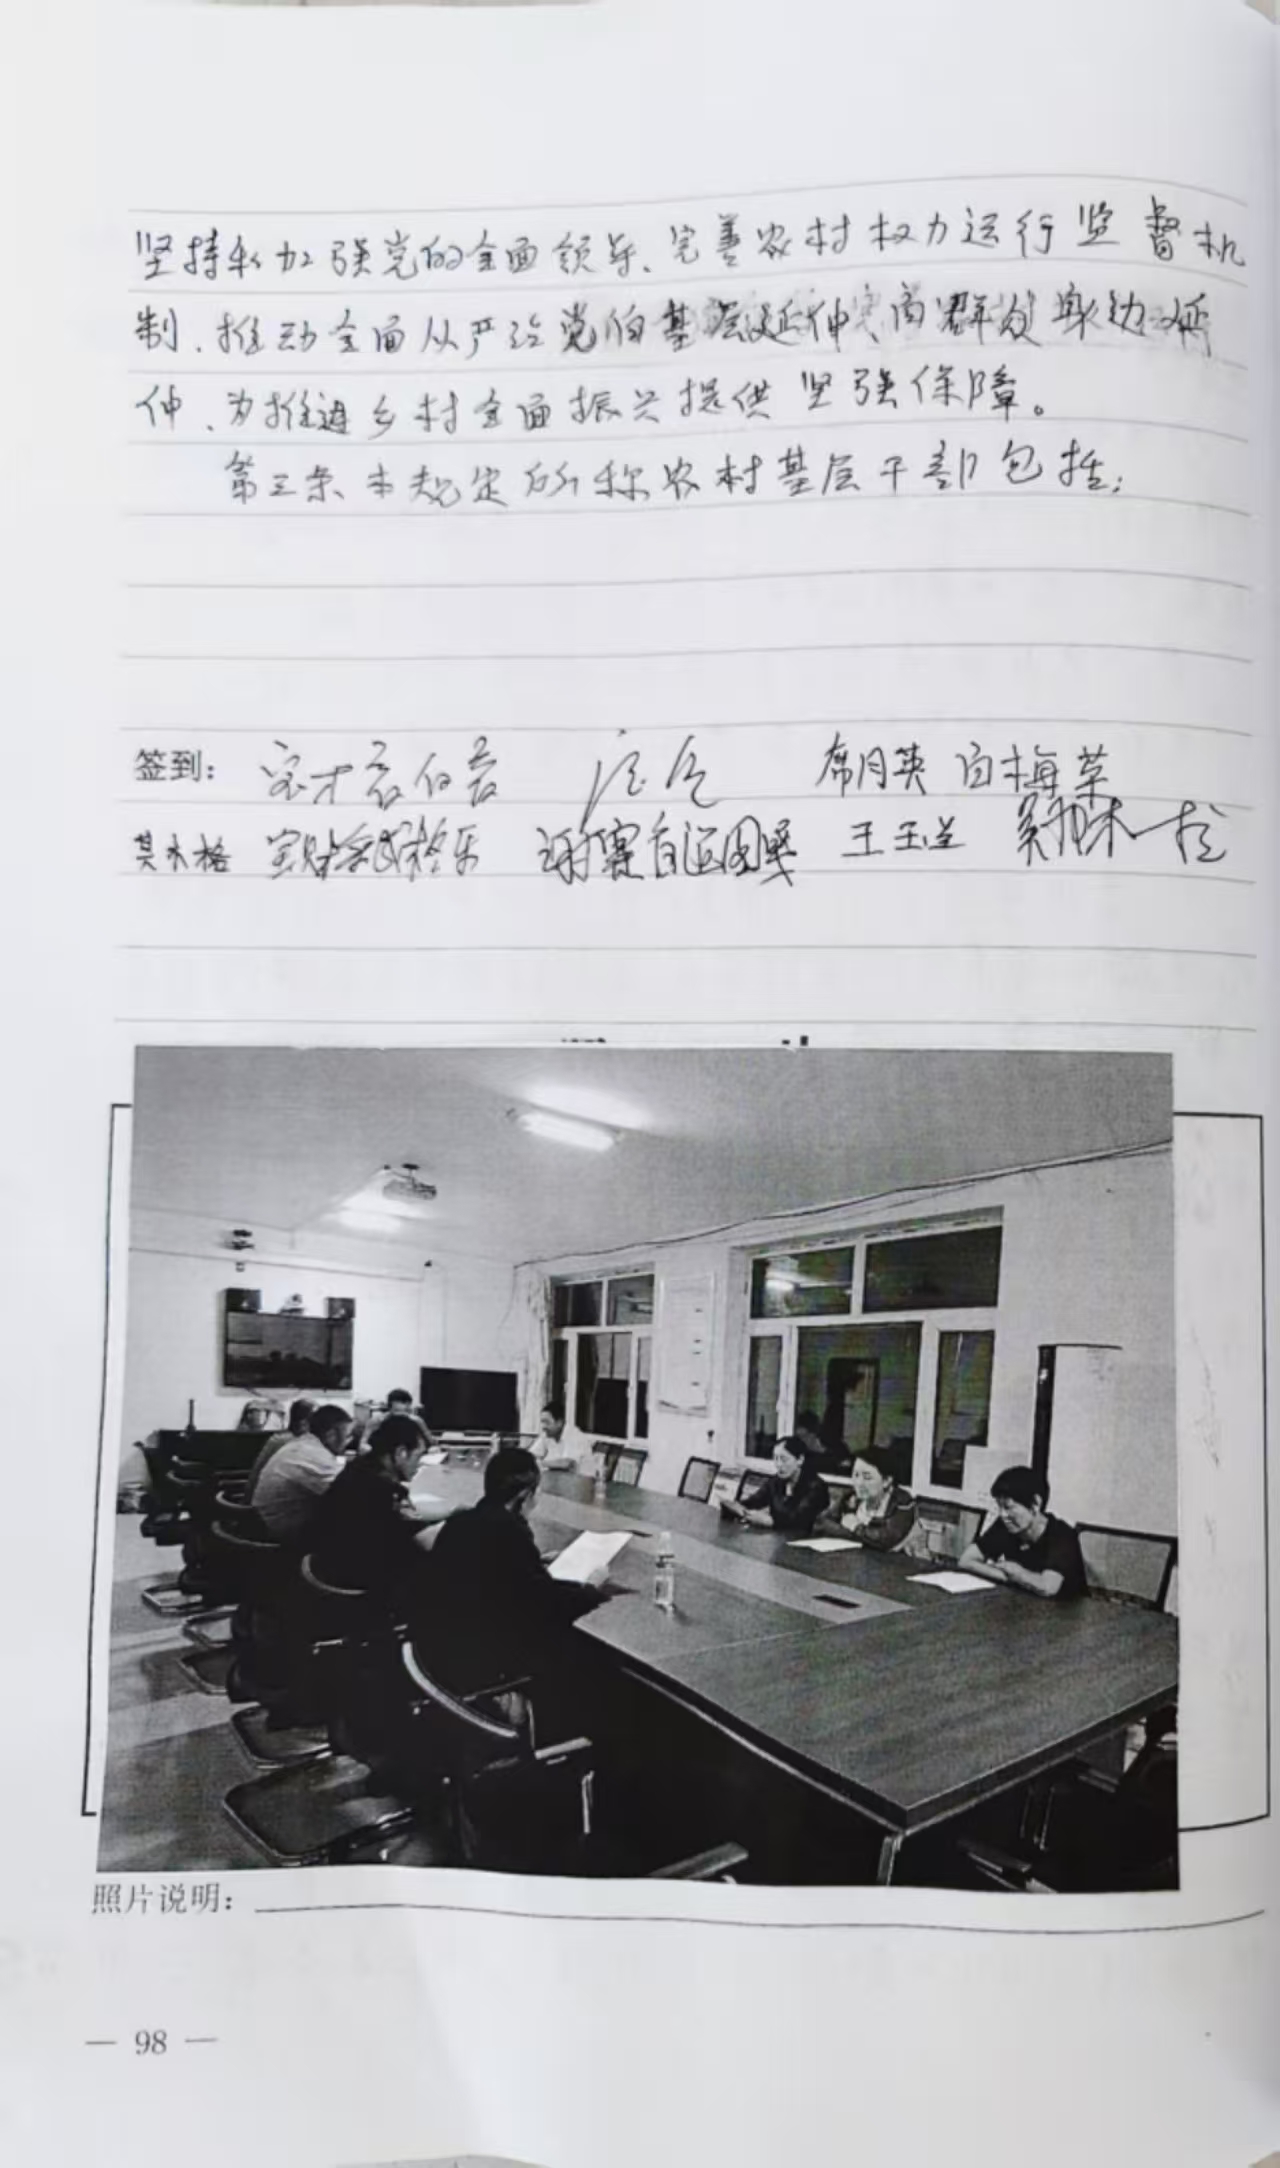 坚持和加强党的全面领导、完善农村权力运行监督机
制、推动全面从严治党向基层延伸、向群众身边延
伸、为推进乡村全面振兴提供坚强保障。
第三条、本规定所称农村基层干部包括:
签到: 席月英 白梅荣
其木格 王玉兰
照片说明:
— 98 —